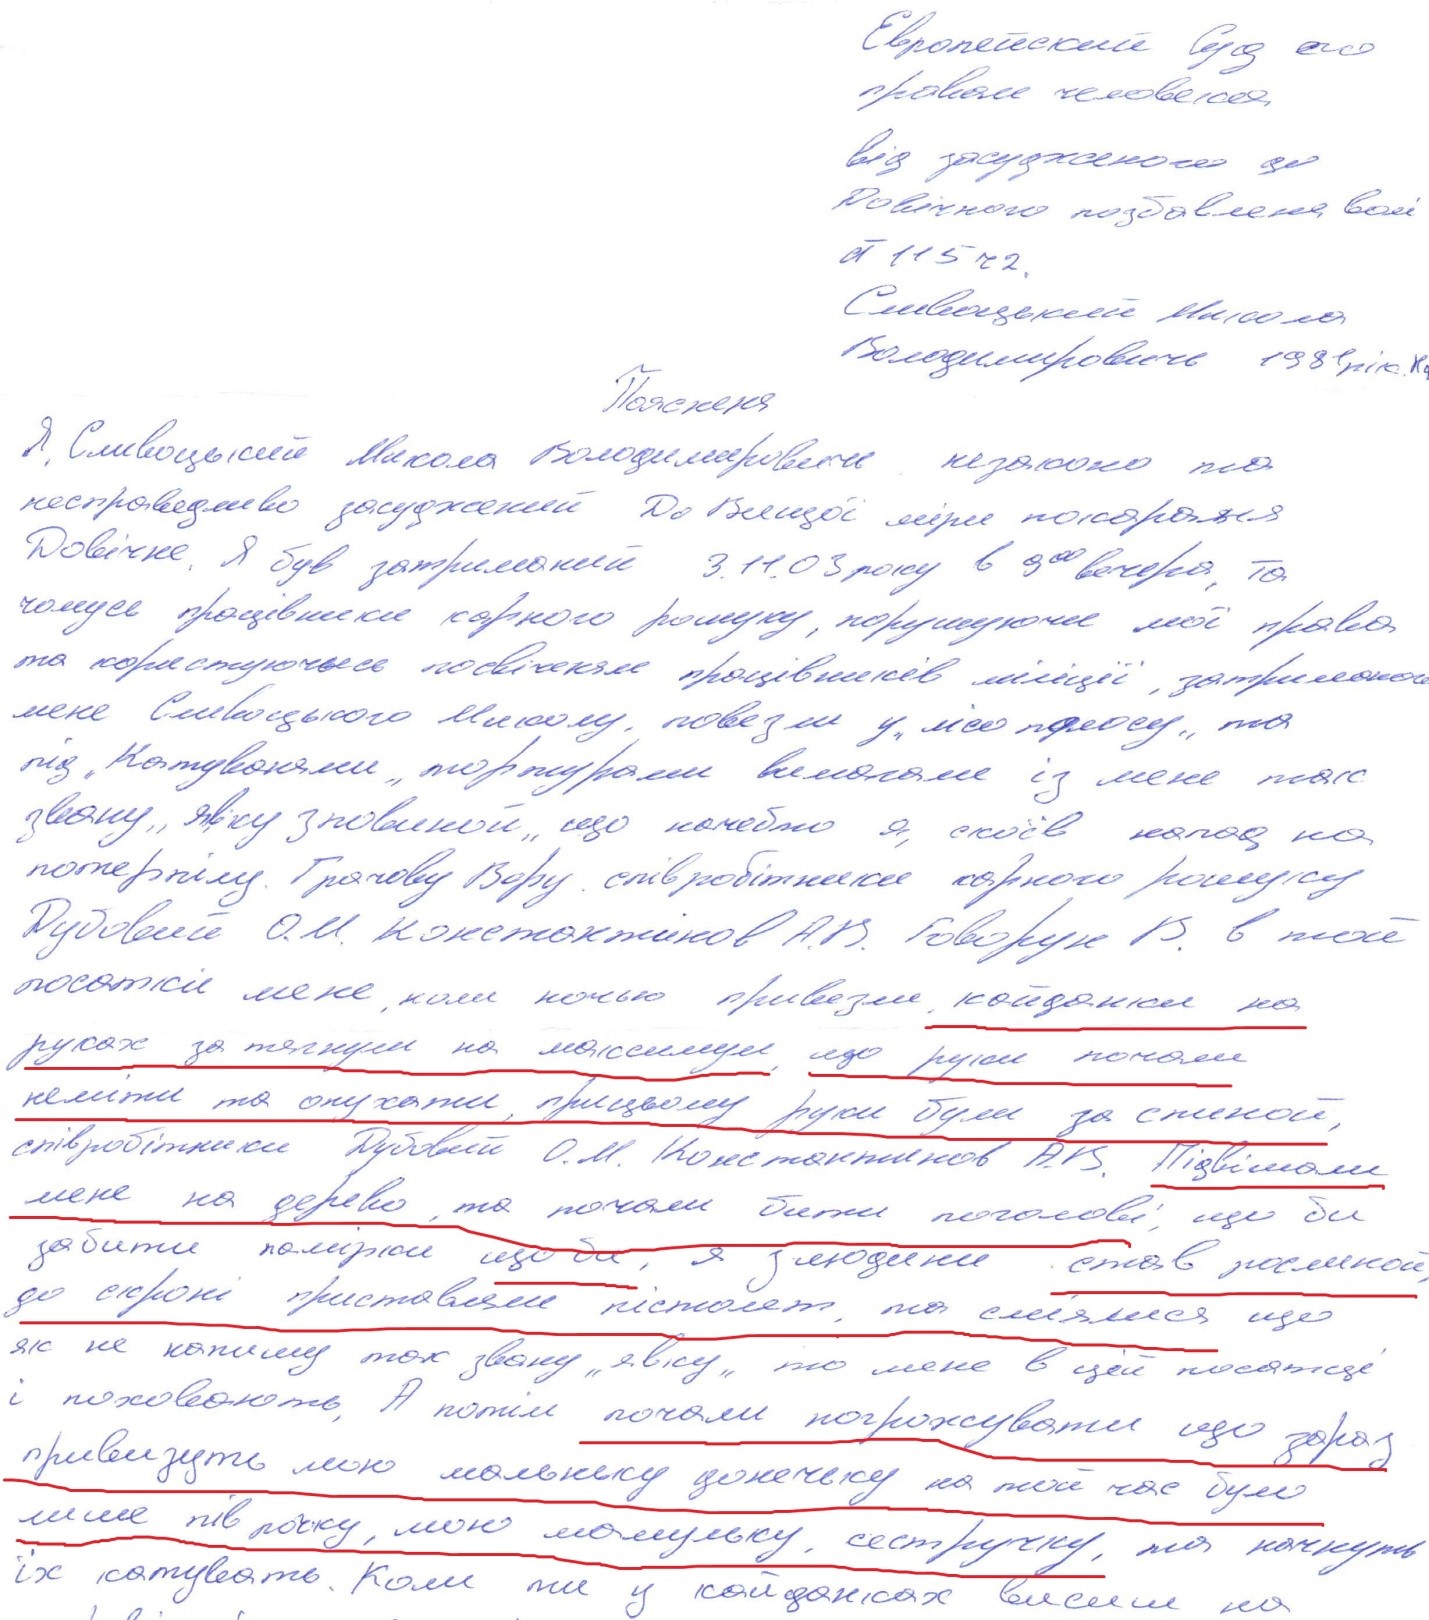 Европейский Суд по
правам человека
від засудженого до
Довічного позбавленя волі
ст 115 ч 2.
Сливоцький Микола
Володимировичь 1981 рік. Нар
Пояснєня
Я, Сливоцький Микола Володимирович незаконо та
несправедливо засуджений До Вищої міри покараня
Довічне. Я був затриманий 3.11.03 року в 9⁰⁰ вечера, та
чомусь працівники карного розшуку, порушуючи мої права
та користуючьсь посвіченям працівників міліції, затриманого
мене Сливоцького Миколу, повезли у „лісо полосу„ та
під „Катуванями„ тортурами вимагали із мене так
звану „явку з повиной„ що начебто я, скоїв напад на
потерпілу. Грачову Вару. співробітники карного розшуку
Дубовий О.М. Константінов А.В. Говорун В. в той
посатки мене, коли ночью привезли, кайданки на
руках затягнули на максимум, що руки почали
неміти та опухати, прицьому руки були за спиной,
співробітники Дубовий О.М. Константинов А.В. Підвішали
мене на дерево, та почали бити поголові, що би
забити памірки що би, я з людини став рослиной,
до скроні приставляли пістолет, та сміялися що
як не напишу так звану „явку„ то мене в цей посатці
і поховають. А потім почали погрожувати що зараз
привизуть мою мальньку донечьку на той час було
лише пів рочку, мою мамульку, сестричку, та начнуть
їх катувать. Коли ти у кайданках висиш на